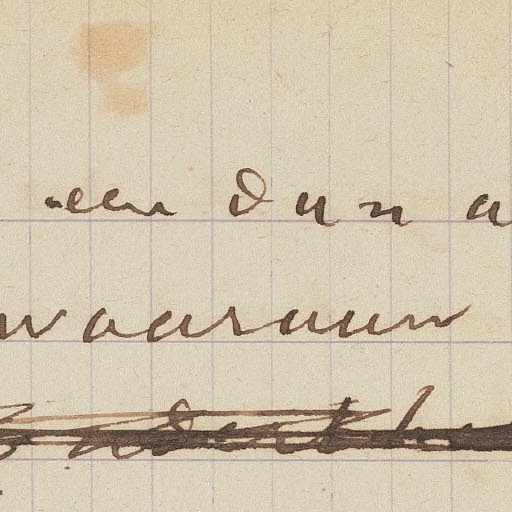 een dun a
waaraan